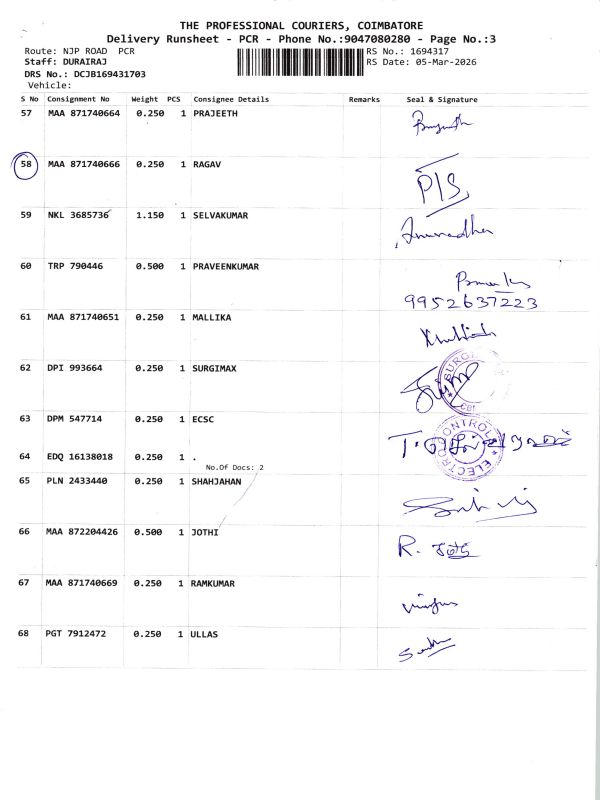 THE PROFESSIONAL COURIERS, COIMBATORE
Delivery Runsheet - PCR - Phone No.:9047080280 - Page No.:3
Route: NJP ROAD PCR
RS No.: 1694317
Staff: DURAIRAJ
RS Date: 05-Mar-2026
DRS No.: DCJB169431703
Vehicle:
S No Consignment No Weight PCS Consignee Details Remarks Seal & Signature
57 MAA 871740664 0.250 1 PRAJEETH
58 MAA 871740666 0.250 1 RAGAV P/S
59 NKL 3685736 1.150 1 SELVAKUMAR Anuradha
60 TRP 790446 0.500 1 PRAVEENKUMAR
9952637223
61 MAA 871740651 0.250 1 MALLIKA
62 DPI 993664 0.250 1 SURGIMAX
63 DPM 547714 0.250 1 ECSC
64 EDQ 16138018 0.000 1 .
No.Of Docs: 2
65 PLN 2433440 0.250 1 SHAHJAHAN
66 MAA 872204426 0.500 1 JOTHI R.
67 MAA 871740669 0.250 1 RAMKUMAR
68 PGT 7912472 0.250 1 ULLAS